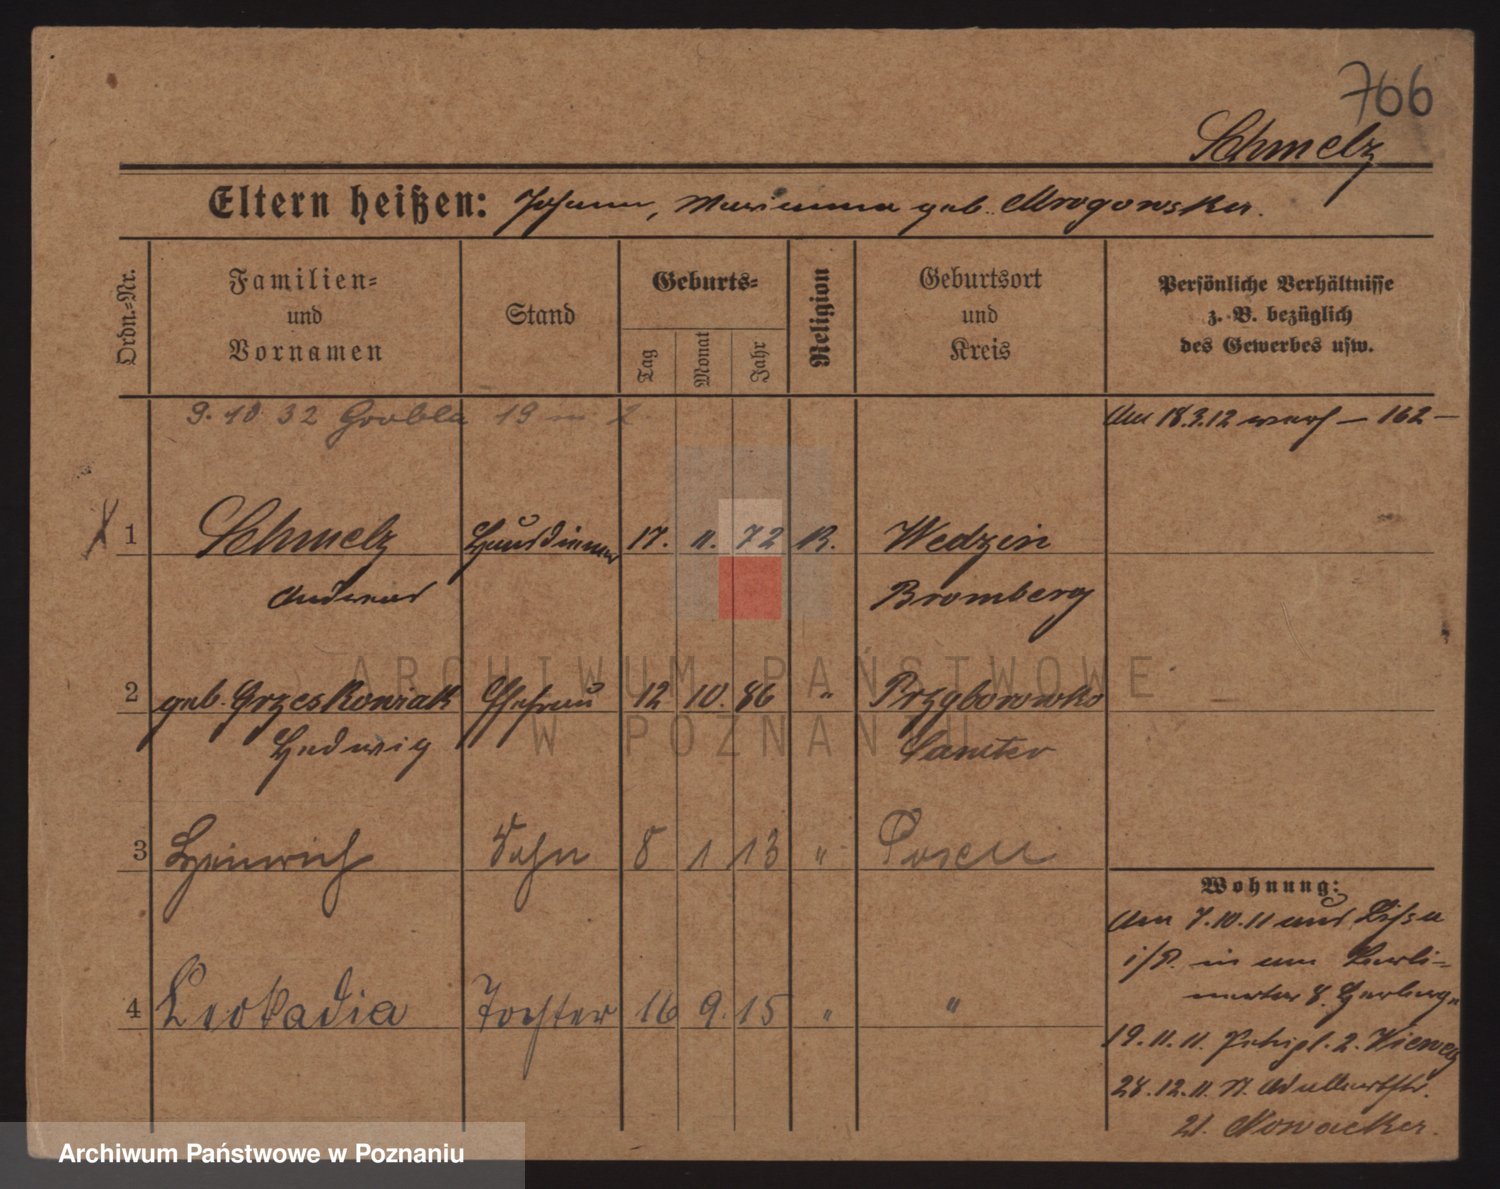 766
Schmelz
Eltern heißen: Johann, Marianna geb. Mrogowska.
Ordn.-Nr.
Familien- und Vornamen
Stand
Geburts-
Tag
Monat
Jahr
Religion
Geburtsort und Kreis
Persönliche Verhältnisse z. B. bezüglich des Gewerbes usw.
9. 10 32 Grobla 19
Am 18.3.12 — 162 —
1 Schmelz Hausdiener 17. 11. 72 K. Wedzin
Andreas Bromberg
2 geb. Grzeskowiak Ehefrau 12 10. 86 " Przyborowko
Hedwig Samter
3 Heinrich Sohn 8 1 13 " Posen
4 Leokadia Tochter 16 9. 15 " "
Wohnung:
Am 7.10.11 aus Lissa
i/P. in
8.
19.11.11. Petripl. 2. Vieweg
28.12.11. N.
21. Nowacka.
ARCHIWUM PAŃSTWOWE
W POZNANIU
Archiwum Państwowe w Poznaniu